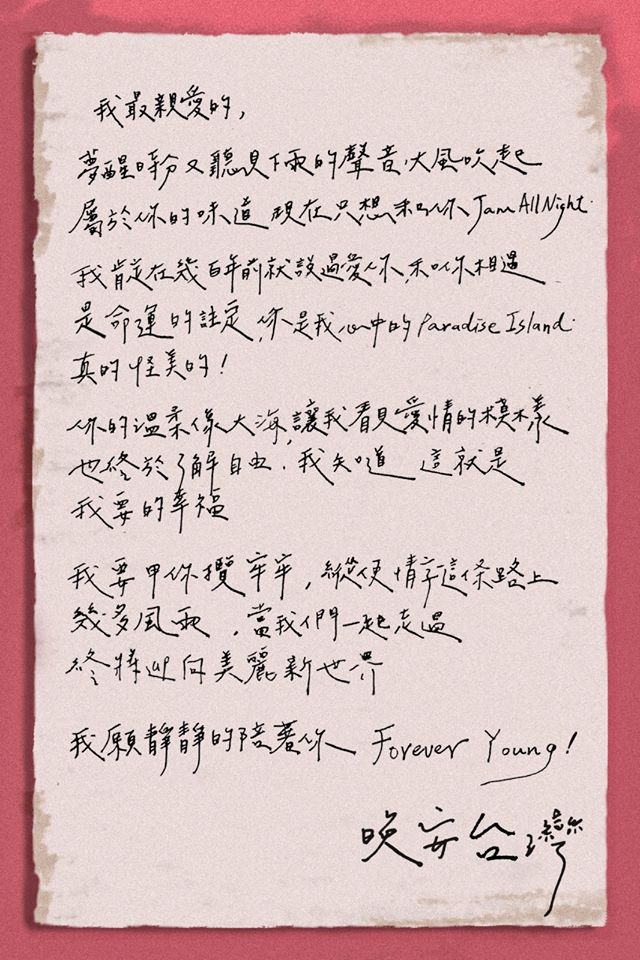 我最親愛的,
夢醒時分又聽見下雨的聲音,大風吹起
屬於你的味道 現在只想和你 Jam All Night.
我肯定在幾百年前就說過愛你,和你相遇
是命運的註定,你是我心中的 Paradise Island.
真的怪美的!
你的溫柔像大海,讓我看見愛情的模樣
也終於了解自由.我知道 這就是
我要的幸福
我要甲你攬牢牢,縱使情字這條路上
幾多風雨,當我們一起走過
終將迎向美麗新世界
我願靜靜的陪著你 Forever Young!
晚安台灣